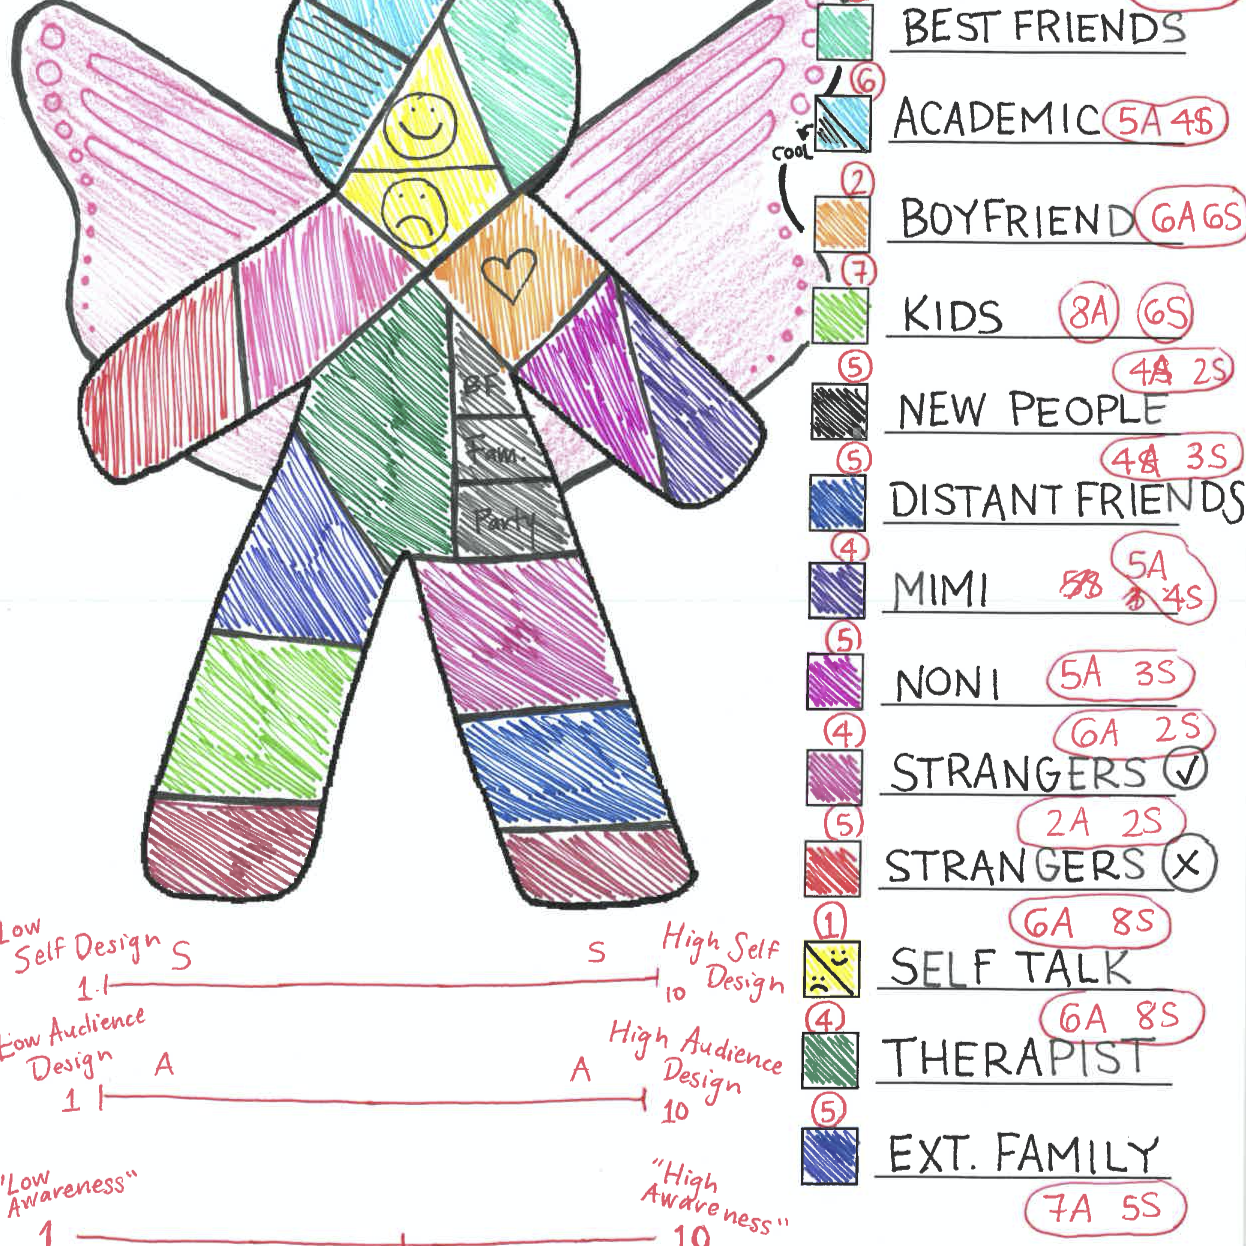 BEST FRIENDS
6
ACADEMIC 5A 4S
COOL
2
BOYFRIEND 6A 6S
7
KIDS 8A 6S
5
4A 2S
NEW PEOPLE
5
4A 3S
DISTANT FRIENDS
4
MIMI 5A 4S
5
NONI 5A 3S
4
6A 2S
STRANGERS ✓
5
2A 2S
STRANGERS X
1
6A 8S
SELF TALK
4
6A 8S
THERAPIST
5
EXT. FAMILY
7A 5S
BF
Fam.
Party
Low
Self Design
S
S
High Self
Design
1
10
Low Audience
Design
A
A
High Audience
Design
1
10
"Low
Awareness"
"High
Awareness"
1
10